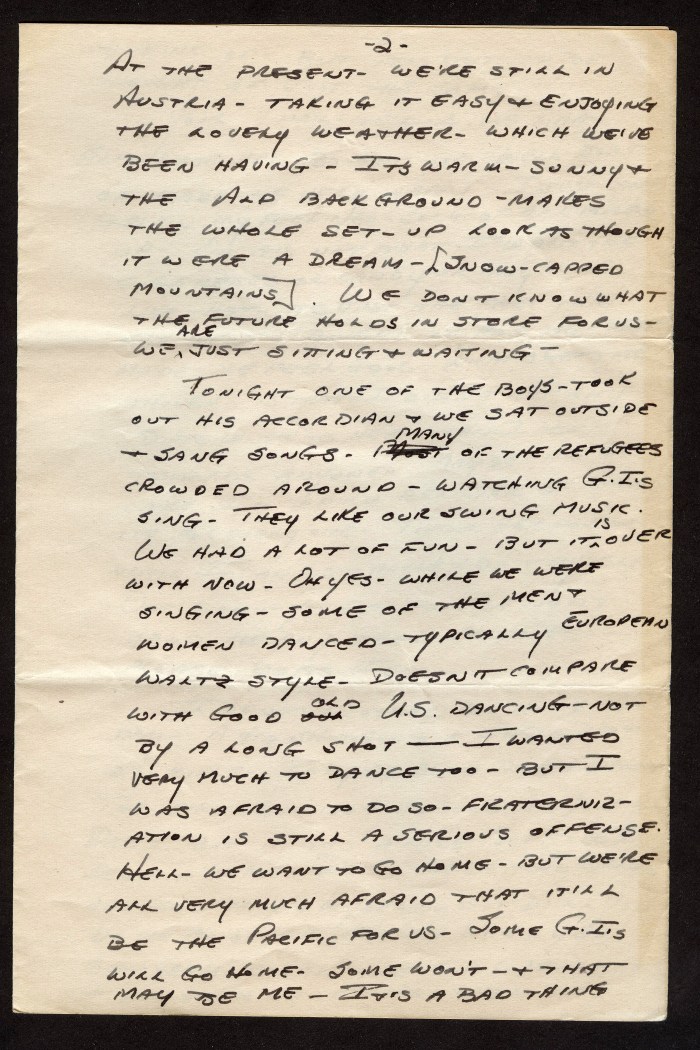 -2-
AT THE PRESENT- WE'RE STILL IN
AUSTRIA- TAKING IT EASY & ENJOYING
THE LOVELY WEATHER- WHICH WE'VE
BEEN HAVING - ITS WARM- SUNNY &
THE ALP BACKGROUND -MAKES
THE WHOLE SET-UP LOOK AS THOUGH
IT WERE A DREAM-[SNOW-CAPPED
MOUNTAINS]. WE DON'T KNOW WHAT
THE FUTURE HOLDS IN STORE FOR US-
WE ARE JUST SITTING & WAITING -
TONIGHT ONE OF THE BOYS-TOOK
OUT HIS ACCORDIAN & WE SAT OUTSIDE
& SANG SONGS- MANY OF THE REFUGEES
CROWDED AROUND - WATCHING G.I.s
SING- THEY LIKE OUR SWING MUSIC.
WE HAD A LOT OF FUN - BUT IT IS OVER
WITH NOW- OH YES- WHILE WE WERE
SINGING- SOME OF THE MEN &
WOMEN DANCED-TYPICALLY EUROPEAN
WALTZ STYLE- DOESN'T COMPARE
WITH GOOD OLD U.S. DANCING-NOT
BY A LONG SHOT — I WANTED
VERY MUCH TO DANCE TOO- BUT I
WAS AFRAID TO DO SO- FRATERNIZ-
ATION IS STILL A SERIOUS OFFENSE.
HELL- WE WANT TO GO HOME - BUT WE'RE
ALL VERY MUCH AFRAID THAT IT'LL
BE THE PACIFIC FOR US- SOME G.I.s
WILL GO HOME- SOME WON'T-& THAT
MAY BE ME - IT'S A BAD THING